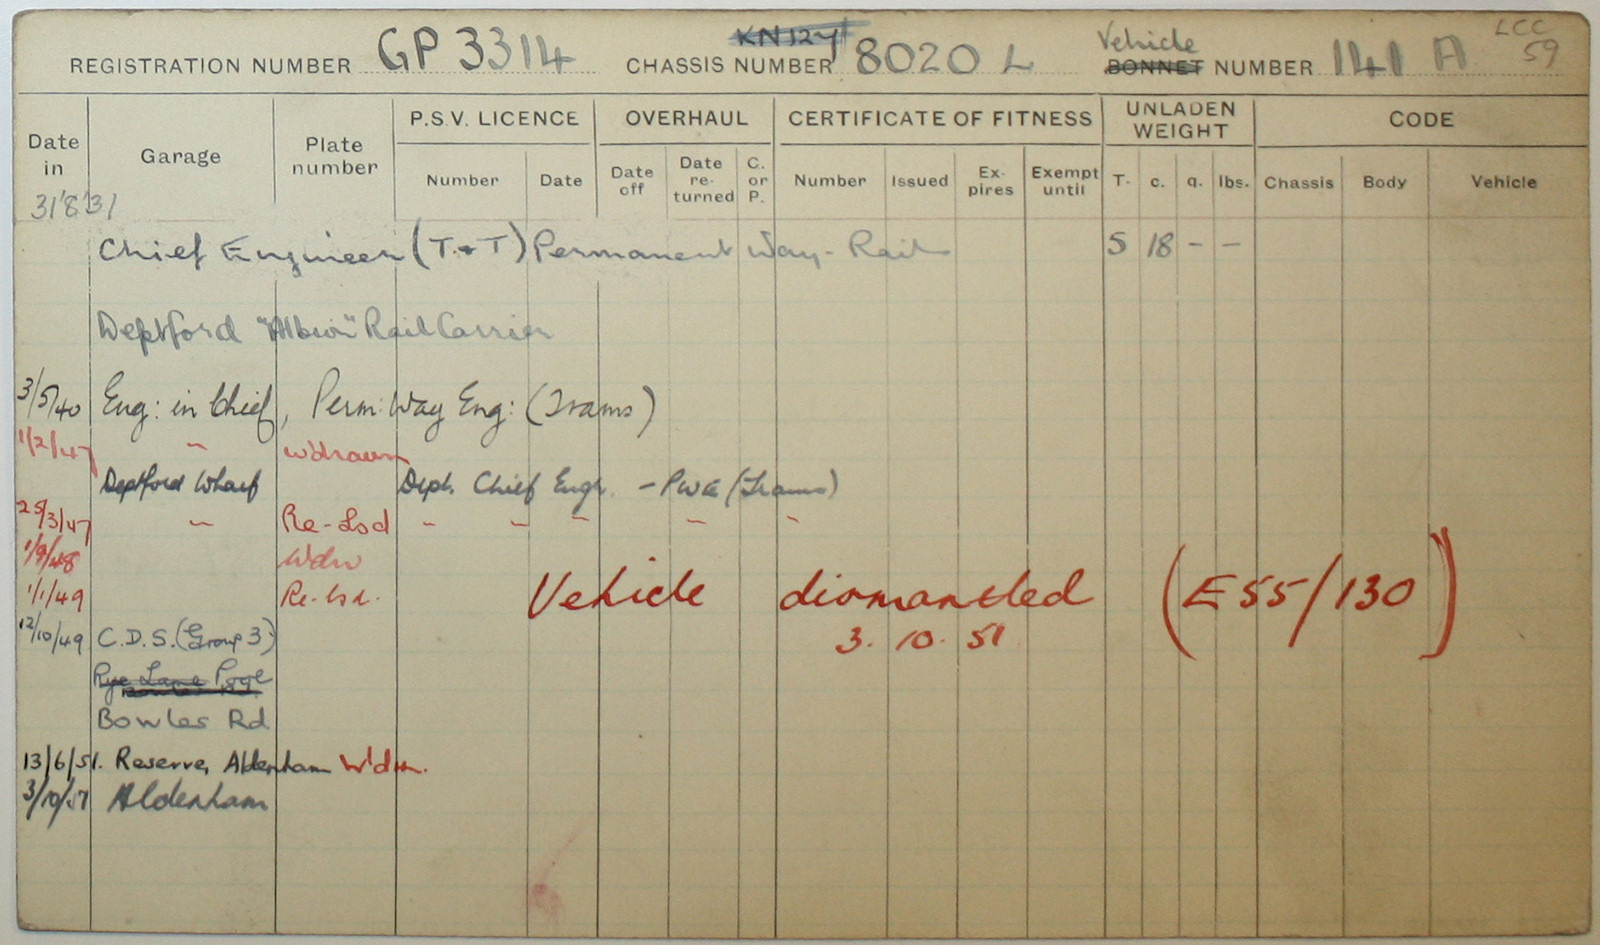 LCC
REGISTRATION NUMBER GP 3314 CHASSIS NUMBER KN127 8020 L Vehicle BONNET NUMBER 141 A 59
Date in Garage Plate number P.S.V. LICENCE OVERHAUL CERTIFICATE OF FITNESS UNLADEN WEIGHT CODE
Number Date Date off Date re-turned C. or P. Number Issued Ex-pires Exempt until T. c. q. lbs. Chassis Body Vehicle
31/8/31
Chief Engineer (T.&T) Permanent Way - Rail 5 18 - -
Deptford "Albion" Rail Carrier
3/5/40 Eng: in Chief, Perm: Way Eng: (Trams)
1/2/47 " W'drawn
Deptford Wharf Dept. Chief Engr. - PWE (Trams)
25/3/47 " Re-Lsd " " " " "
1/9/48 Wdn
1/1/49 Re-lsd. Vehicle dismantled (E55/130)
12/10/49 C.D.S. (Group 3) 3. 10. 51
Rye Lane Pool
Bowles Rd
13/6/51. Reserve, Aldenham W'dn.
3/10/51 Aldenham